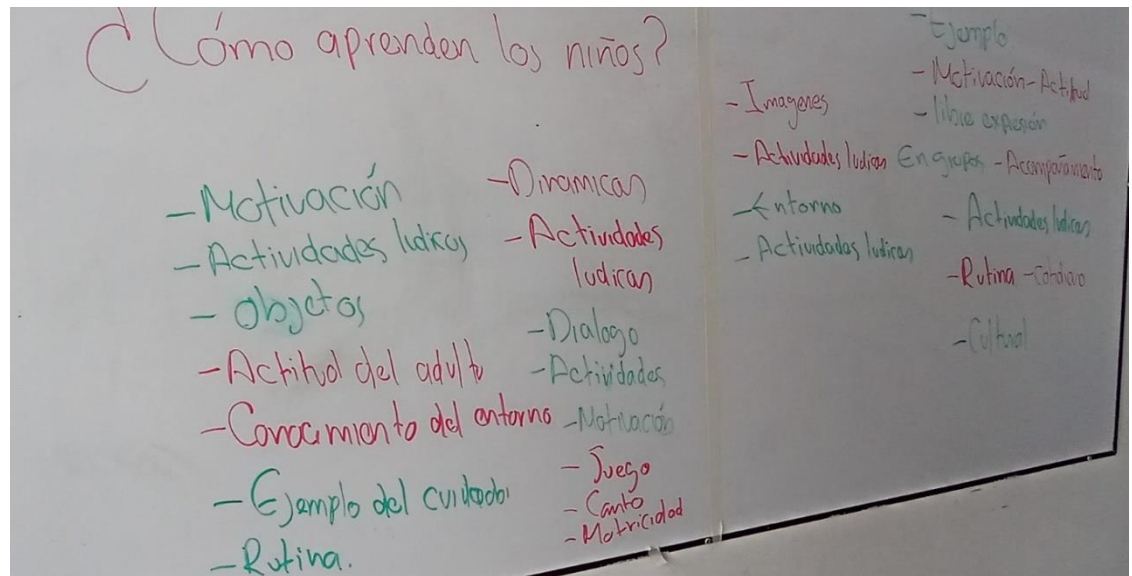 ¿Cómo aprenden los niños?
- Motivación
- Actividades ludicas
- Objetos
- Actitud del adulto
- Conocimiento del entorno
- Ejemplo del cuidador
- Rutina.
- Dinamicas
- Actividades
ludicas
- Dialogo
- Actividades
- Motivación
- Juego
- Canto
- Motricidad
- Imagenes
- Actividades ludicas En grupos
- Entorno
- Actividades ludicas
- Ejemplo
- Motivación - Actitud
- libre expresión
- Acompañamiento
- Actividades ludicas
- Rutina - Cotidiano
- Cultural